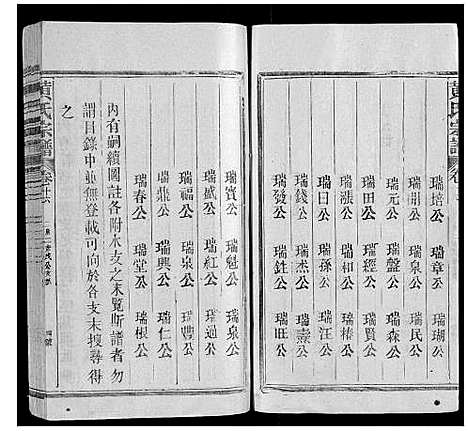 黃氏宗譜
瑞培公 瑞章公 瑞瑚公
瑞開公 瑞泉公 瑞民公
瑞元公 瑞盤公 瑞森公
瑞田公 瑞經公 瑞賢公
瑞漲公 瑞和公 瑞椿公
瑞日公 瑞孫公 瑞汪公
瑞錢公 瑞杰公 瑞燾公
瑞發公 瑞銓公 瑞旺公
瑞賓公 瑞魁公 瑞泉公
瑞盛公 瑞紅公 瑞過公
瑞福公 瑞泉公 瑞豐公
瑞鼎公 瑞興公 瑞仁公
瑞春公 瑞堂公 瑞根公
內有嗣續圖註各附水支之末覧斯譜者勿
謂目錄中並無登載可向於各支末搜尋得
之
黃氏宗譜